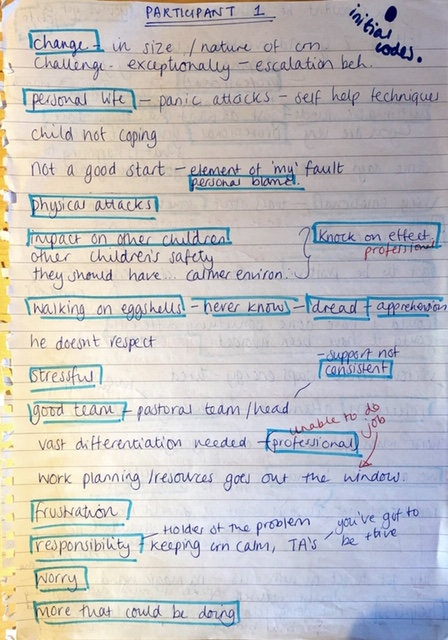 PARTICIPANT 1
initial codes.
change - in size / nature of crn
challenge - exceptionally - escalation beh.
personal life - panic attacks - self help techniques
child not coping
not a good start - element of 'my' fault
personal blame.
physical attacks
impact on other children
other children's safety
they should have... calmer environ.
knock on effect
professional
walking on eggshells - never knows - dread + apprehension
he doesnt respect
- support not consistent
stressful
good team - pastoral team / head
unable to do job
vast differentiation needed - professional
work planning / resources goes out the window.
frustration
responsibility - Holder of the problem
keeping crn calm, TA's - you've got to be +tive
worry
more that could be doing